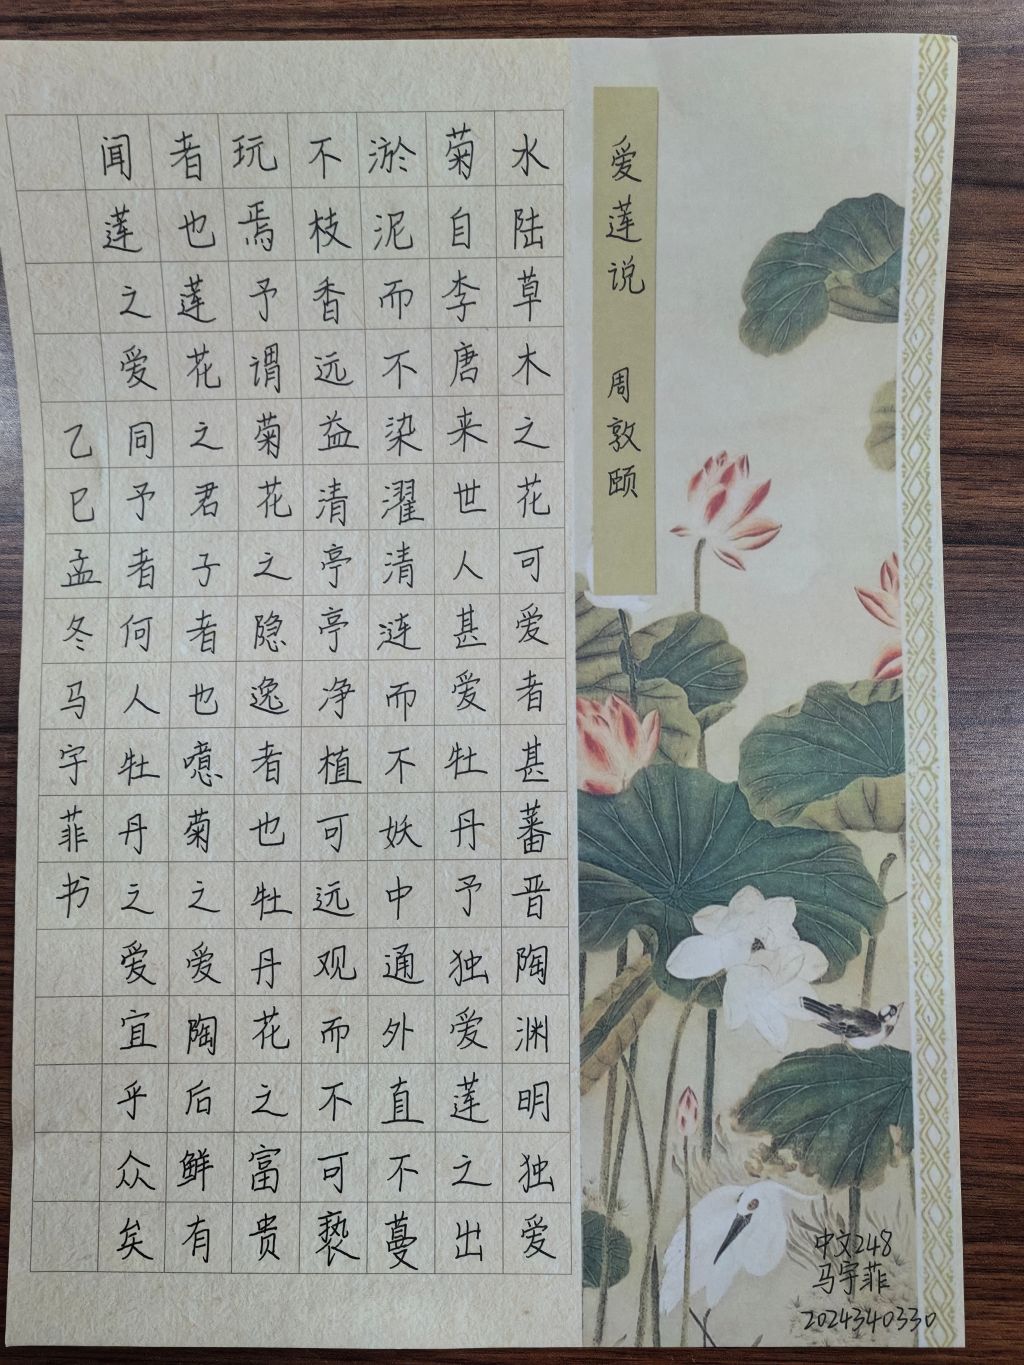 爱莲说 周敦颐
水陆草木之花可爱者甚蕃晋陶渊明独爱
菊自李唐来世人甚爱牡丹予独爱莲之出
淤泥而不染濯清涟而不妖中通外直不蔓
不枝香远益清亭亭净植可远观而不可亵
玩焉予谓菊花之隐逸者也牡丹花之富贵
者也莲花之君子者也噫菊之爱陶后鲜有
闻莲之爱同予者何人牡丹之爱宜乎众矣
乙巳孟冬马宇菲书
中文248
马宇菲
2024340330